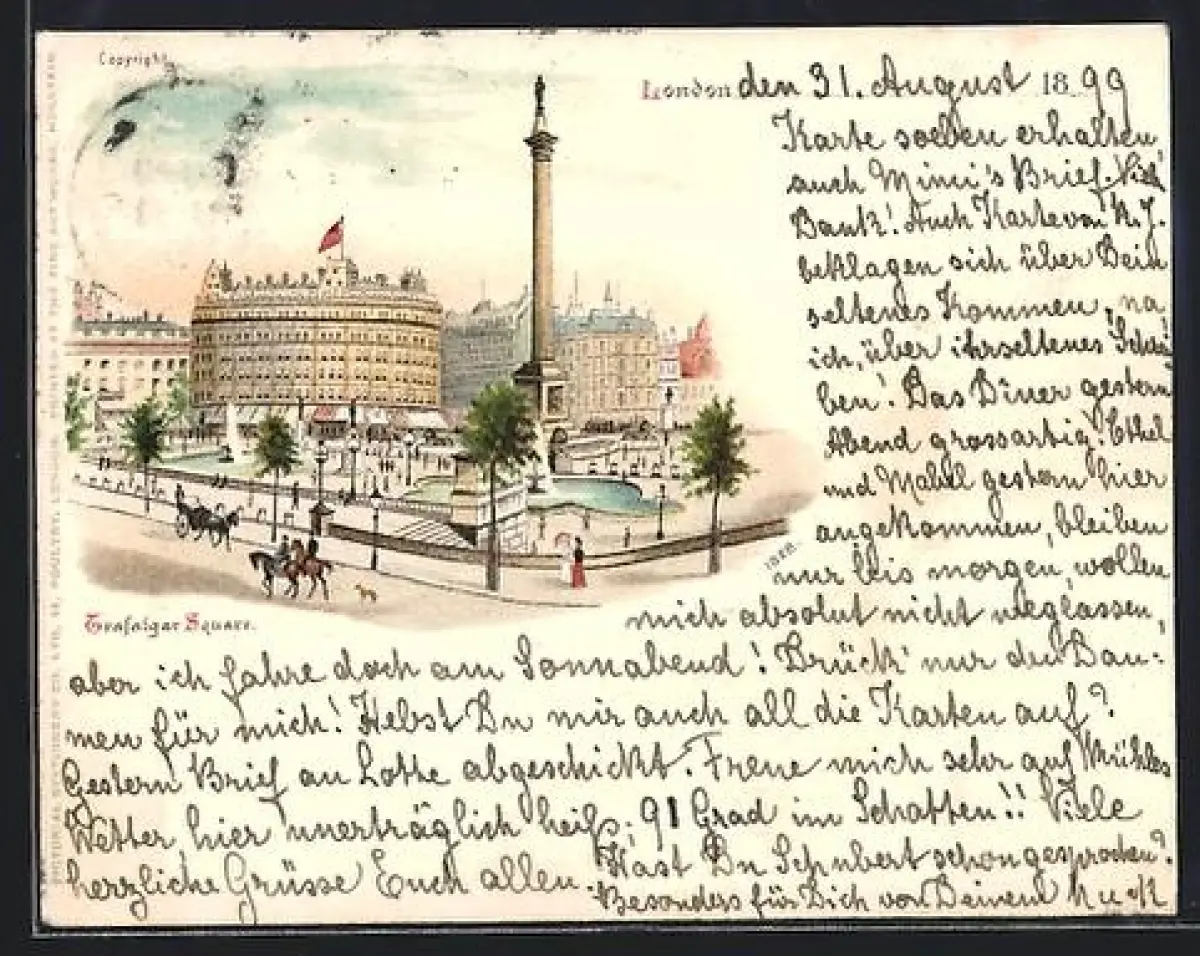 Copyright
London den 31. August 1899
Karte soeben erhalten,
auch Mimi's Brief. Viel
Dank! Auch Karte von N.J.
beklagen sich über Dein
seltenes Kommen, na
ich, über ihr seltenes Schrei
ben! Das Diner gestern
Abend grossartig! Ethel
und Mabel gestern hier
angekommen, bleiben
nur bis morgen, wollen
mich absolut nicht weglassen,
1828.
Trafalgar Square.
aber ich fahre doch am Sonnabend! Drück' nur den Dau=
men für mich! Hebst Du mir auch all die Karten auf?
Gestern Brief an Lotte abgeschickt. Freue mich sehr auf
Wetter hier unerträglich heiß; 91 Grad im Schatten!! Viele
herzliche Grüsse Euch allen.
Hast Du Schubert schon gesprochen?
Besonders für Dich von Deinem